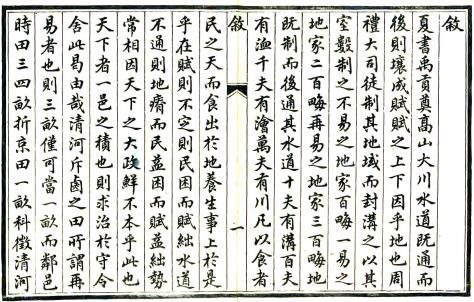 敘
夏書禹貢奠髙山大川水道既通而
後則壤成賦賦之上下因乎地也周
禮大司徒制其地域而封溝之以其
室數制之不易之地家百畮一易之
地家二百畮再易之地家三百畮地
既制而後通其水道十夫有溝百夫
有洫千夫有澮萬夫有川凡以食者
敘
一
民之天而食出於地養生事上於是
乎在賦則不定則民困而賦絀水道
不通則地瘠而民益困而賦益絀勢
常相因天下之大政鮮不本乎此也
天下者一邑之積也則求治於守令
舍此曷由哉清河斥鹵之田所謂再
易者也則三畝僅可當一畝而鄰邑
時田三四畝折京田一畝科徵清河